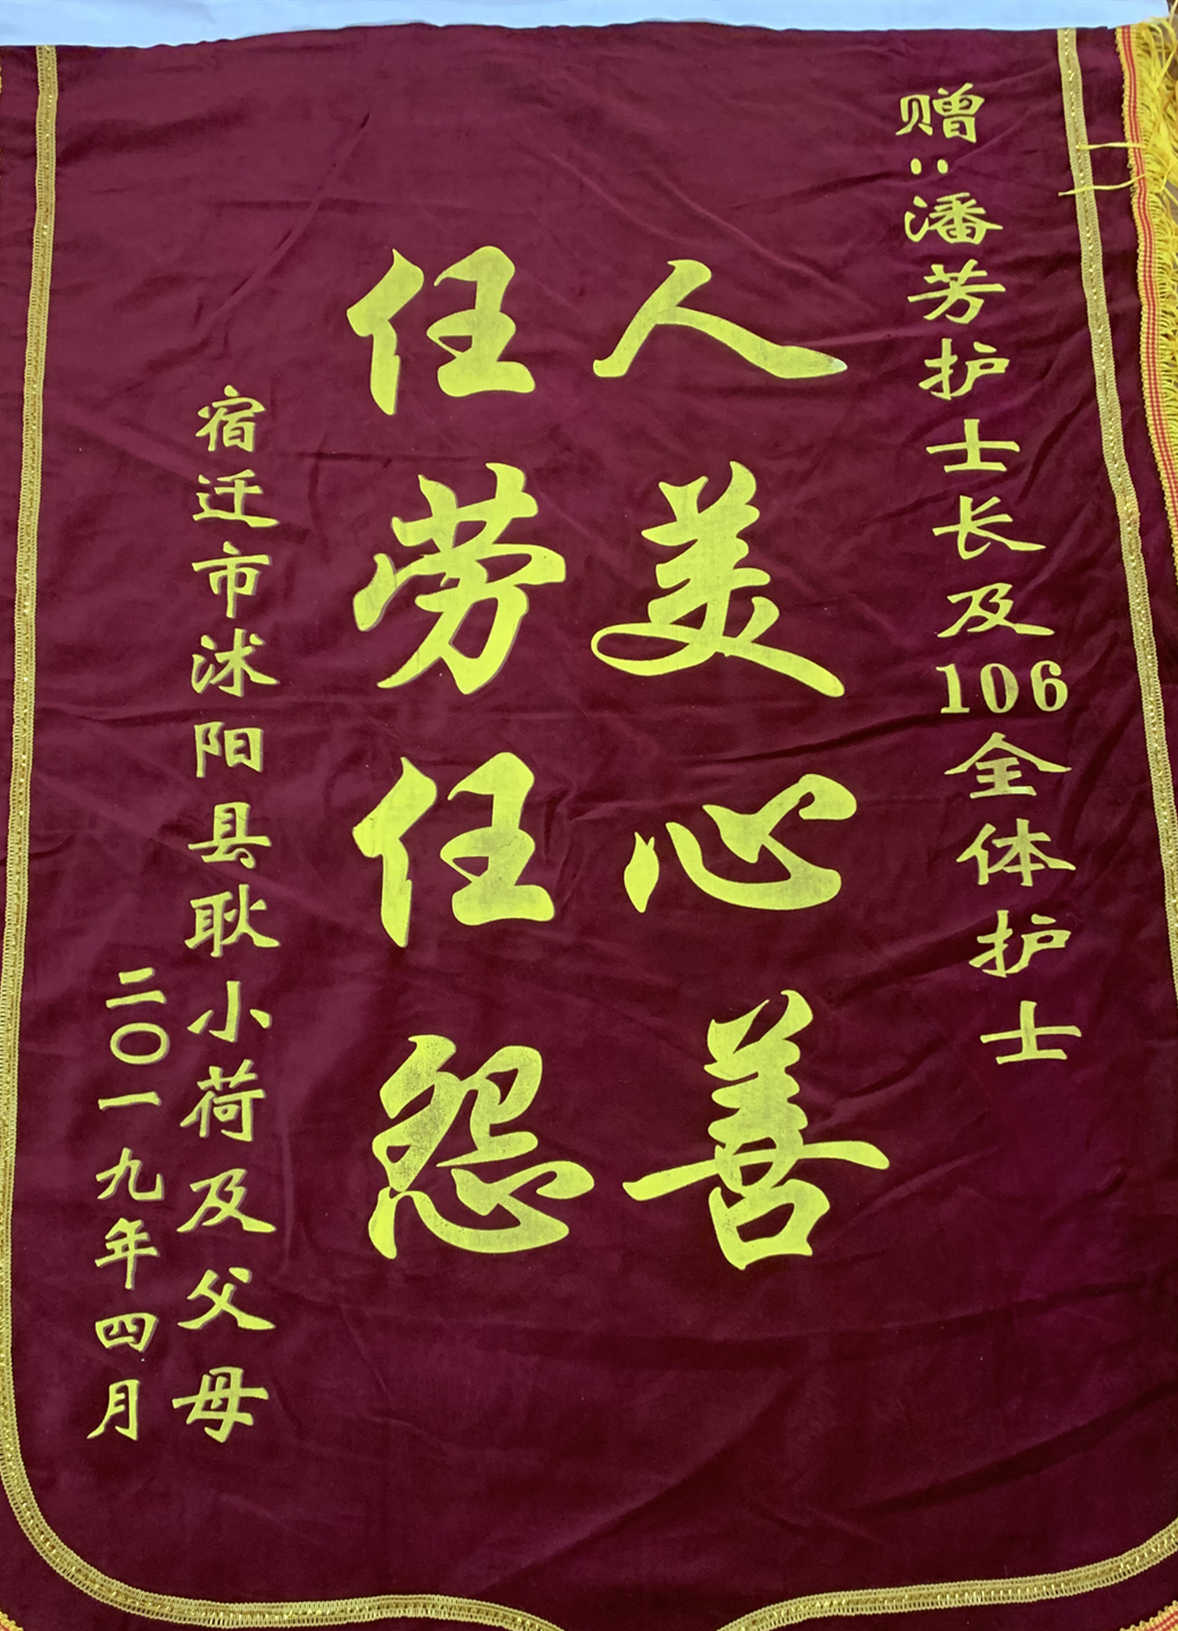 赠：潘芳护士长及106全体护士
人美心善
任劳任怨
宿迁市沭阳县耿小荷及父母
二〇一九年四月